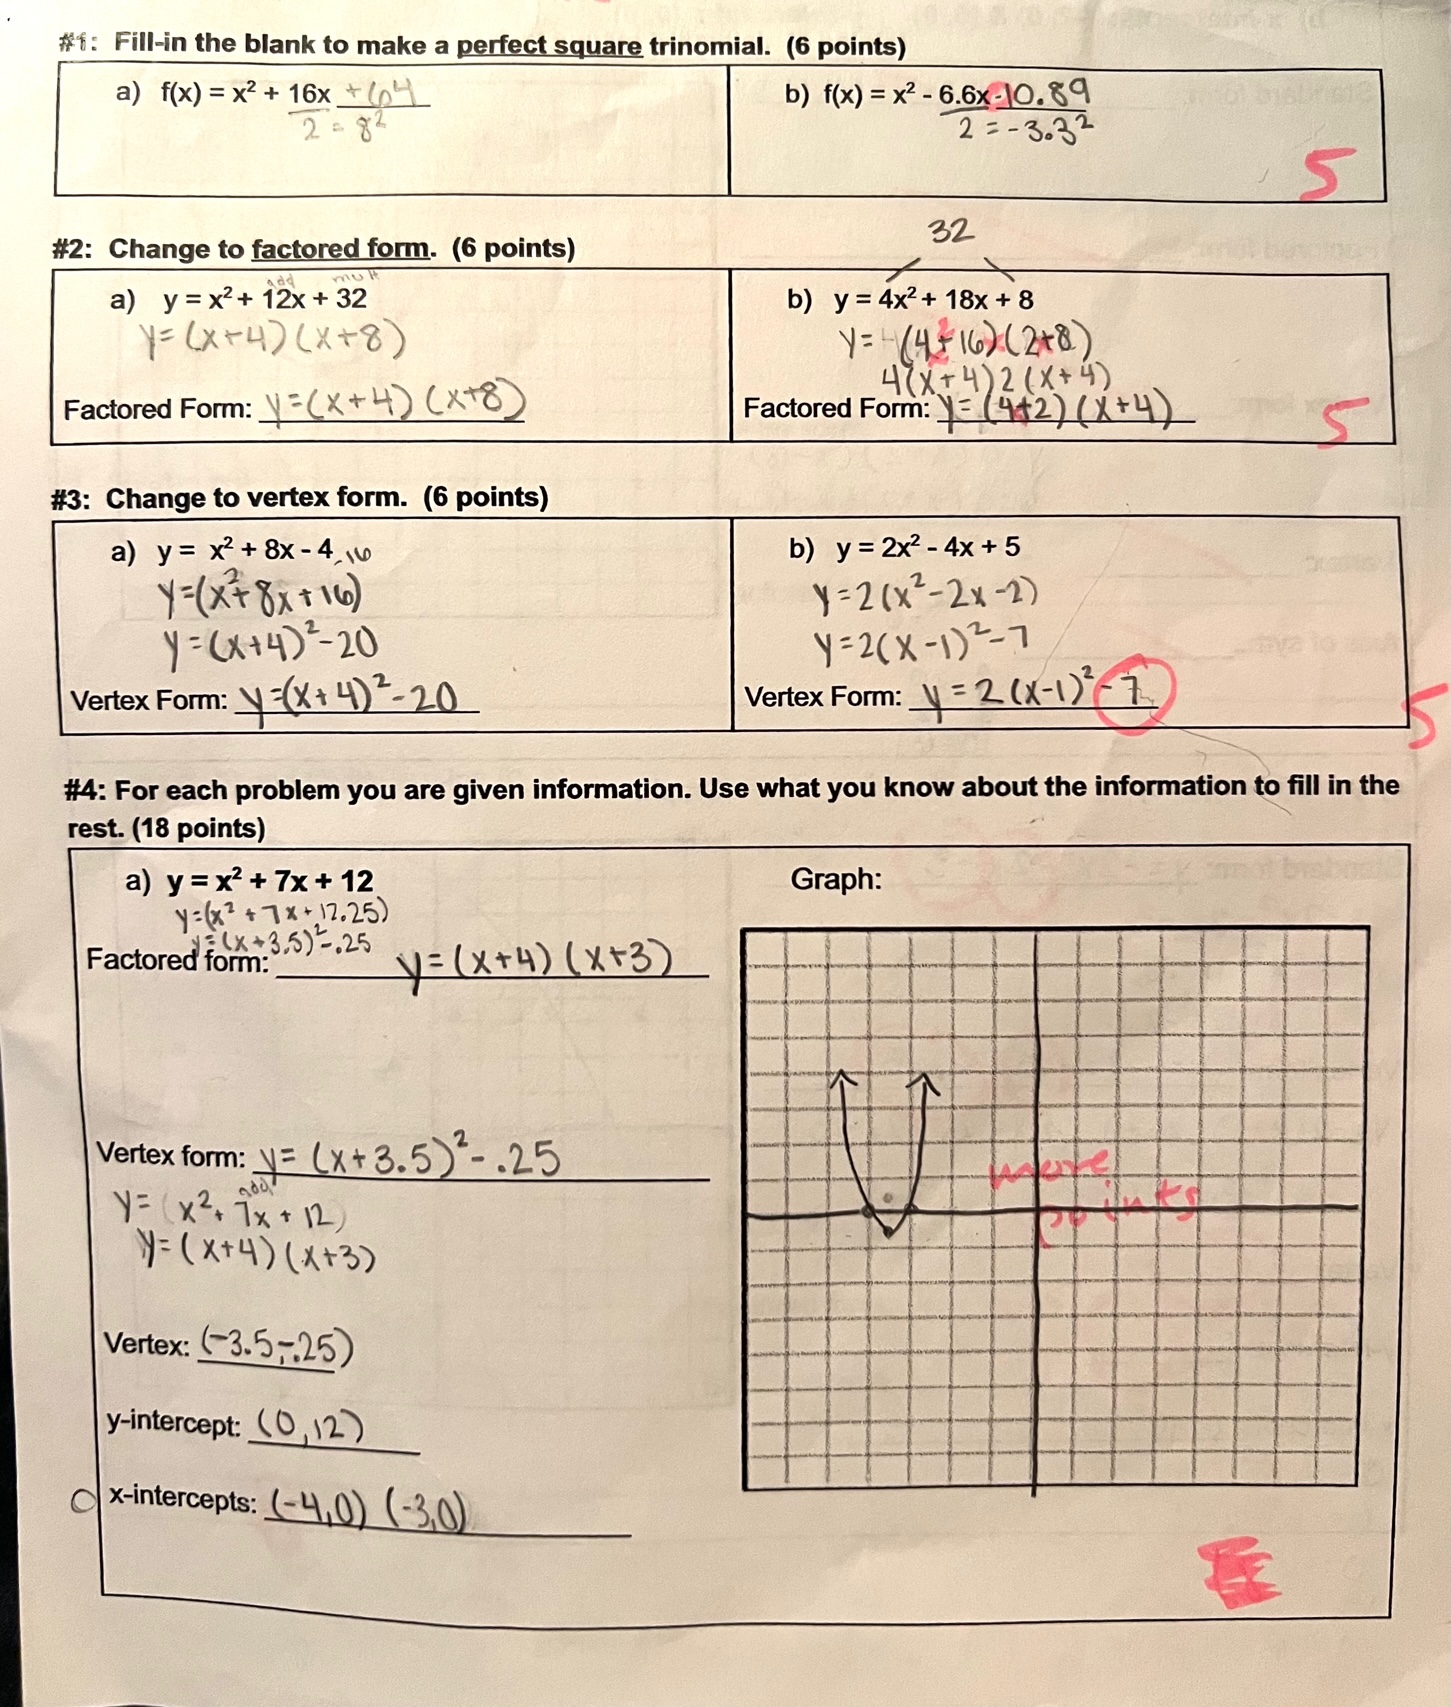 #1: Fill-in the blank to make a perfect square trinomial. (6 points)
a) f(x) = x² + 16x +64
2 = 8²
b) f(x) = x² - 6.6x -10.89
2 = -3.3²
5
#2: Change to factored form. (6 points)
add mult
a) y = x² + 12x + 32
y=(x+4)(x+8)
Factored Form: y=(x+4)(x+8)
32
b) y = 4x² + 18x + 8
y= (4+16)(2+8)
4(x+4)2(x+4)
Factored Form: y=(4+2)(x+4)
5
#3: Change to vertex form. (6 points)
a) y = x² + 8x - 4 -16
y=(x²+8x+16)
y=(x+4)²-20
Vertex Form: y=(x+4)²-20
b) y = 2x² - 4x + 5
y=2(x²-2x-2)
y=2(x-1)²-7
Vertex Form: y=2(x-1)²-7
5
#4: For each problem you are given information. Use what you know about the information to fill in the
rest. (18 points)
a) y = x² + 7x + 12
y=(x²+7x+12.25)
y=(x+3.5)²-.25
Factored form: y=(x+4)(x+3)
Vertex form: y=(x+3.5)²-.25
add
y=(x²+7x+12)
y=(x+4)(x+3)
Vertex: (-3.5,-.25)
y-intercept: (0,12)
x-intercepts: (-4,0) (-3,0)
Graph:
more
points